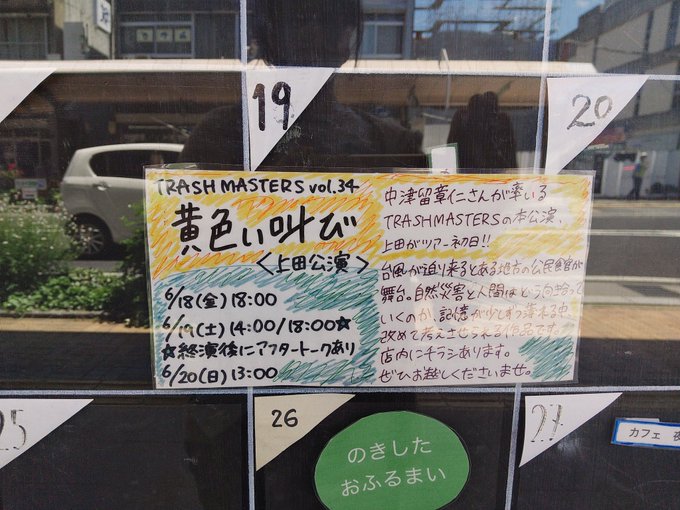 19
20
TRASHMASTERS vol.34
黄色い叫び
<上田公演>
6/18(金) 18:00
6/19(土) 14:00/18:00☆
☆終演後にアフタートークあり
6/20(日) 13:00
中津留章仁さんが率いる
TRASHMASTERSの本公演、
上田がツアー初日!!
台風が迫り来るとある地方の公民館が
舞台。自然災害と人間はどう向き合って
いくのか、記憶が少しずつ薄れる中、
改めて考えさせられる作品です。
店内にチラシあります。
ぜひお越しくださいませ。
25
26
のきした
おふるまい
27
カフェ 夜